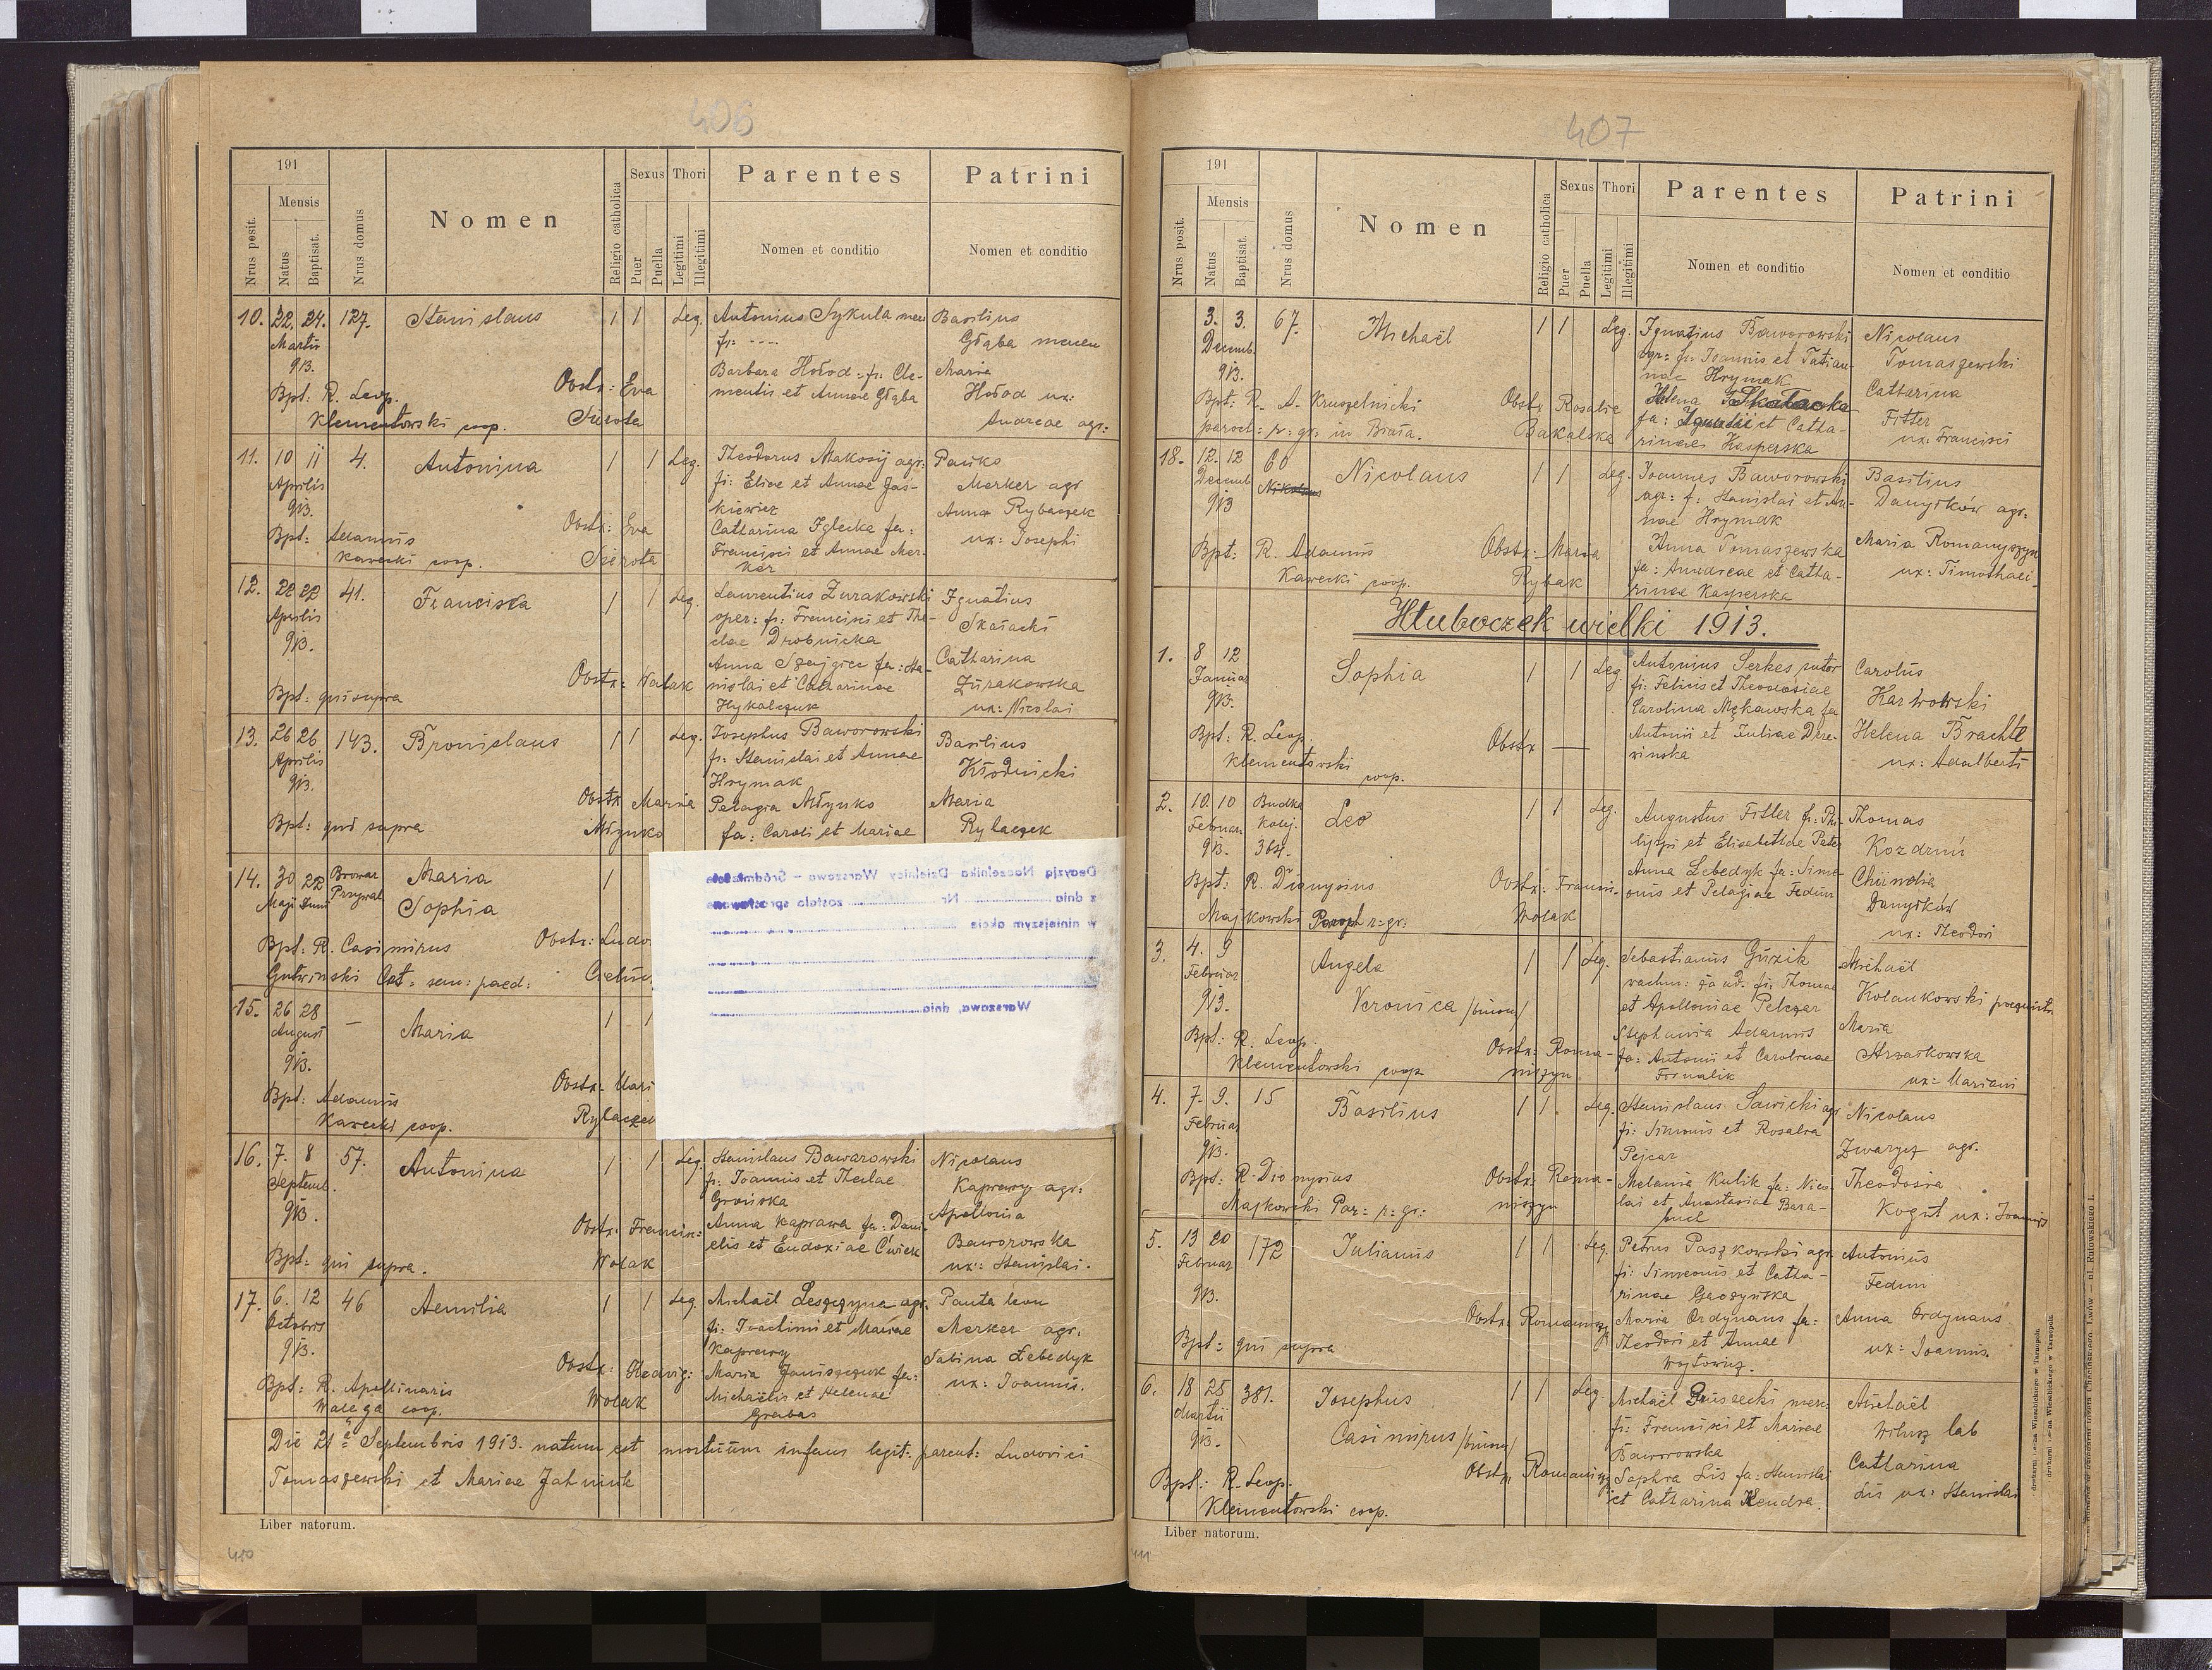 406
191
Nrus posit.
Mensis
Natus
Baptisat.
Nrus domus
Nomen
Religio catholica
Sexus
Puer
Puella
Thori
Legitimi
Illegitimi
Parentes
Nomen et conditio
Patrini
Nomen et conditio
10. 22. 24. 127. Stanislaus 1 1 Leg. Antonius Sykula Basilius
Martii fi: ---- Głąba
913. Barbara Hołod fi: Cle- Maria
Bpt: R. Leop. Obstx: Eva mentis et Annae Głąba Hołod ux:
Klementowski coop. Sierota Andreae agr:
11. 10 11 4. Antonina 1 1 Leg. Theodorus Makosij agr. Pańko
Aprilis fi: Eliae et Annae Jas- Merker agr
913. kiewicz Anna Rybaczek
Bpt: Adamus Obstx: Eva Catharina Iglecka fa: ux: Josephi
Kawecki coop. Sierota Francisci et Annae Mer-
ker
12. 22 22 41. Francisca 1 1 Leg. Laurentius Żurakowski Ignatius
Aprilis oper: fi: Francisci et The- Skałacki
913. clae Drobnicka
Anna fa: Sta- Catharina
Obstx: Wolak nislai et Catharinae Żurakowska
Bpt: qui supra Hykalczuk ux: Nicolai
13. 26 26 143. Bronislaus 1 1 Leg. Josephus Baworowski Basilius
Aprilis fi: Stanislai et Annae Kłodnicki
913. Hrymak
Obstx Maria Pelagia Młynko Maria
Bpt: qui supra Młynko fa: Caroli et Mariae Rylaczek
14. 30 22 Browar Maria 1
Maji Junii Przywal Sophia
Bpt: R. Casimirus Obstx: Ludo
Gutwinski Cat. sem: paed:
15. 26 28 - Maria 1 1
August
913.
Bpt: Adamus Obstx: Mari
Kawecki coop. Rylaczek
Decyzją Naczelnika Dzielnicy Warszawa – Śródmieście
z dnia Nr została sprostowana
w niniejszym akcie
Warszawa, dnia
16. 7. 8 57. Antonina 1 1 Leg. Stanislaus Baworowski Nicolaus
Septemb. fi: Joannis et Theclae Kaprawy agr:
913. Grońska Apollonia
Obstx: Francis: Anna Kaprawa fa: Dani- Baworowska
Bpt: qui supra. Wolak elis et Eudoxiae Ćwiek ux: Stanislai.
17. 6. 12 46 Aemilia 1 1 Leg. Michaël Leszczyna agr. Panta leon
Octobris fi: Joachimi et Mariae Merker agr.
913. Kaprawy Sabina Lebedyk
Obstx: Hedvig: Maria Janiszczuk fa: ux: Joannis.
Bpt: R. Apollinaris Wolak Michaëlis et Helenae
Wałęga coop. Grabas
Die 21ª Septembris 1913. natum est mortuum infans legit: parent: Ludovici
Tomaszewski et Mariae
Liber natorum.
410
407
191
Nrus posit.
Mensis
Natus
Baptisat.
Nrus domus
Nomen
Religio catholica
Sexus
Puer
Puella
Thori
Legitimi
Illegitimi
Parentes
Nomen et conditio
Patrini
Nomen et conditio
3. 3. 67. Michaël 1 1 Leg. Ignatius Baworowski Nicolaus
Decemb. agr: fi: Joannis et Tatian- Tomaszewski
913. nae Hrymak
Bpt: R. A. Kruszelnicki Obstx Rosalie Helena Skałacka Catharina
paroch: r: gr: in Biała. Bakalska fa: Ignatii et Catha- Fitter
rinae Kasperska ux: Francisci
18. 12. 12 60 Nicolaus 1 1 Leg. Joannes Baworowski Basilius
Decemb Nikolaus agr: fi: Stanislai et An- Danyłków agr:
913 nae Hrymak
Bpt: R. Adamus Obstx: Maria Anna Tomaszewska Maria Romanyszyn
Kawecki coop. Rybak fa: Andreae et Catha- ux: Timothaei
rinae Kasperska
Hłuboczek wielki 1913.
1. 8 12 Sophia 1 1 Leg. Antonius Serkes sutor Carolus
Januar fi: Felicis et Theodosiae Karwowski
913. Carolina Mękawska fa
Bpt: R. Leop. Obstx — Antonii et Juliae Dere- Helena Brachte
Klementowski winska ux: Adalberti
coop.
2. 10. 10 Budka Leo 1 1 Leg. Augustus Fitter fi: Phi- Thomas
Februar. kolej. lippi et Elisabethae Kozdruń
913. 364.
Bpt: R. Dionysius Obstx: Francis- Anna Lebedyk fa: Sime- Danyłków
Majkowski Paroch r: gr: Wolak onis et Pelagiae Fedun ux: Theodori
3. 4. 9 Angela 1 1 Leg. Sebastianus Guzik Michaël
Februar Veronica /binom/ fi: Thomae Kolankowski
913. et Apolloniae Pelczar
Bpt: R. Leop. Obstx: Roma- Stephania Adamus Maria
Klementowski coop. niszyn fa: Antonii et Carolinae
Fornalik ux: Mariani
4. 7. 9. 15 Basilius 1 1 Leg. Stanislaus Sawicki agr Nicolaus
Februar fi: Simonis et Rosalia Dwarycz agr.
913. Pejcar
Bpt: R. Dionysius Obstx: Roma- Melania Kulik fa: Nico- Theodosia
Majkowski Par: r: gr: niszyn lai et Anastasiae Bara- Kogut ux: Joannis
5. 13 20 172 Julianus 1 1 Leg. Petrus Paszkowski agr Antonius
Februar fi: Simeonis et Catha- Fedun
913. rinae
Obstx: Romaniszyn Maria Ordynans fa: Anna Ordynans
Bpt: qui supra Theodori et Annae ux: Joannis.
Wojtowicz.
6. 18 25 381. Josephus 1 1 Leg. Michaël Gruszecki Michaël
Martii Casimirus /binom/ fi: Francisci et Mariae Witusz lab
913. Baworowska
Bpt: R. Leop. Obstx Romaniszyn Sophia Lis fa: Stanislai Catharina
Klementowski coop. et Catharina Kendra. Lis ux: Stanislai
Liber natorum.
411